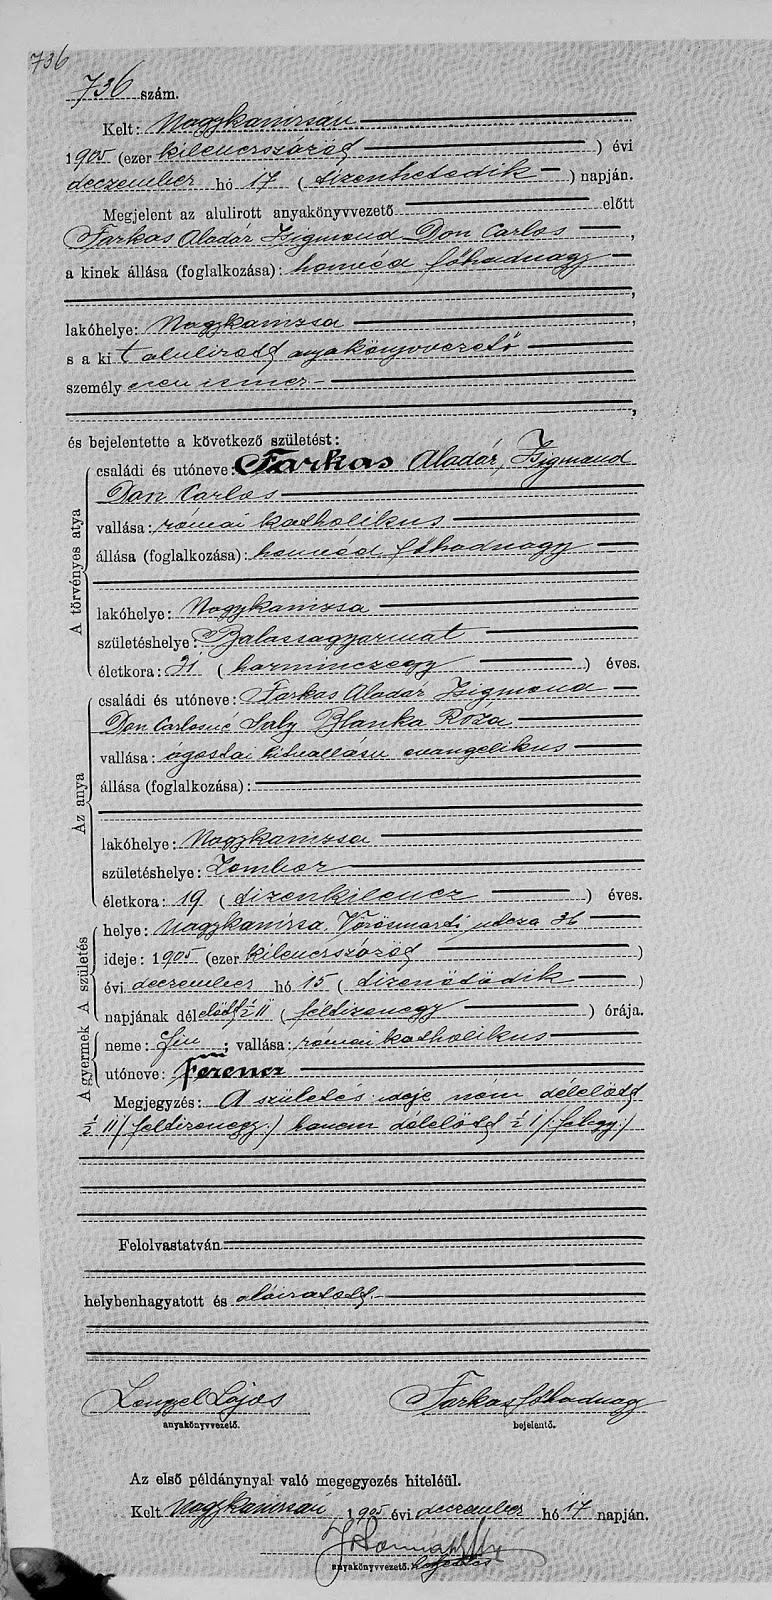 736
736 szám.
Kelt: Nagykanizsán
1905 (ezer kilenczszázöt) évi
deczember hó 17 (tizenhetedik) napján.
Megjelent az alulirott anyakönyvvezető előtt
Farkas Aladár Zsigmond Don Carlos,
a kinek állása (foglalkozása): honvéd főhadnagy
,
lakóhelye: Nagykanizsa,
s a kit alulirott anyakönyvvezető
személyesen ismer
,
és bejelentette a következő születést:
A törvényes atya
családi és utóneve: Farkas Aladár, Zsigmond
Don Carlos
vallása: római katholikus
állása (foglalkozása): honvéd főhadnagy
lakóhelye: Nagykanizsa
születéshelye: Balassagyarmat
életkora: 31 (harminczegy) éves.
Az anya
családi és utóneve: Farkas Aladár Zsigmond
Don Carlosné Saly Blanka Roza
vallása: ágostai hitvallásu evangelikus
állása (foglalkozása):
lakóhelye: Nagykanizsa
születéshelye: Zombor
életkora: 19 (tizenkilencz) éves.
A születés
helye: Nagykanizsa, Vörösmarti utcza 36
ideje: 1905 (ezer kilenczszázöt)
évi deczember hó 15 (tizenötödik)
napjának délelőtt ½ 11 (féltizenegy) órája.
A gyermek
neme: fiu; vallása: római katholikus
utóneve: Ferencz
Megjegyzés: A születés ideje nem délelött
½ 11 /:féltizenegy:/ hanem délelött ½ 1 /:fél egy:/
Felolvastatván
helybenhagyatott és aláiratott.
Lengyel Lajos Farkas főhadnagy
anyakönyvvezető. bejelentő.
Az első példánynyal való megegyezés hiteléül.
Kelt Nagykanizsán 1905 évi deczember hó 17 napján.
anyakönyvvezető. helyettes